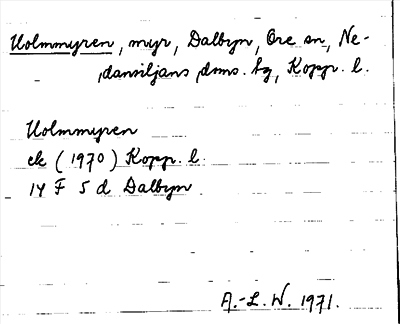 Holmmyren, myr, Dalbyn, Ore sn, Ne-
dansiljans dms. hg, Kopp. l.
Holmmyren
ek (1970) Kopp. l.
14 F 5 d Dalbyn
A.-L. W. 1971.